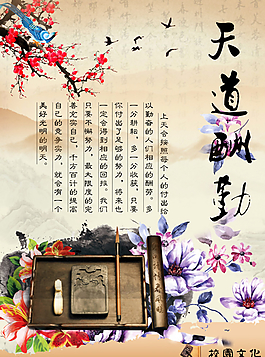 天道酬勤
上天会按照每个人的付出给
以勤奋的人们相应的酬劳。多
一分耕耘，多一分收获，只要
你付出了足够的努力，将来也
一定会得到相应的回报。我们
只要不懈努力，最大限度的完
善充实自己，千方百计的提高
自己的竞争实力，就会有一个
美好光明的明天。
校园文化